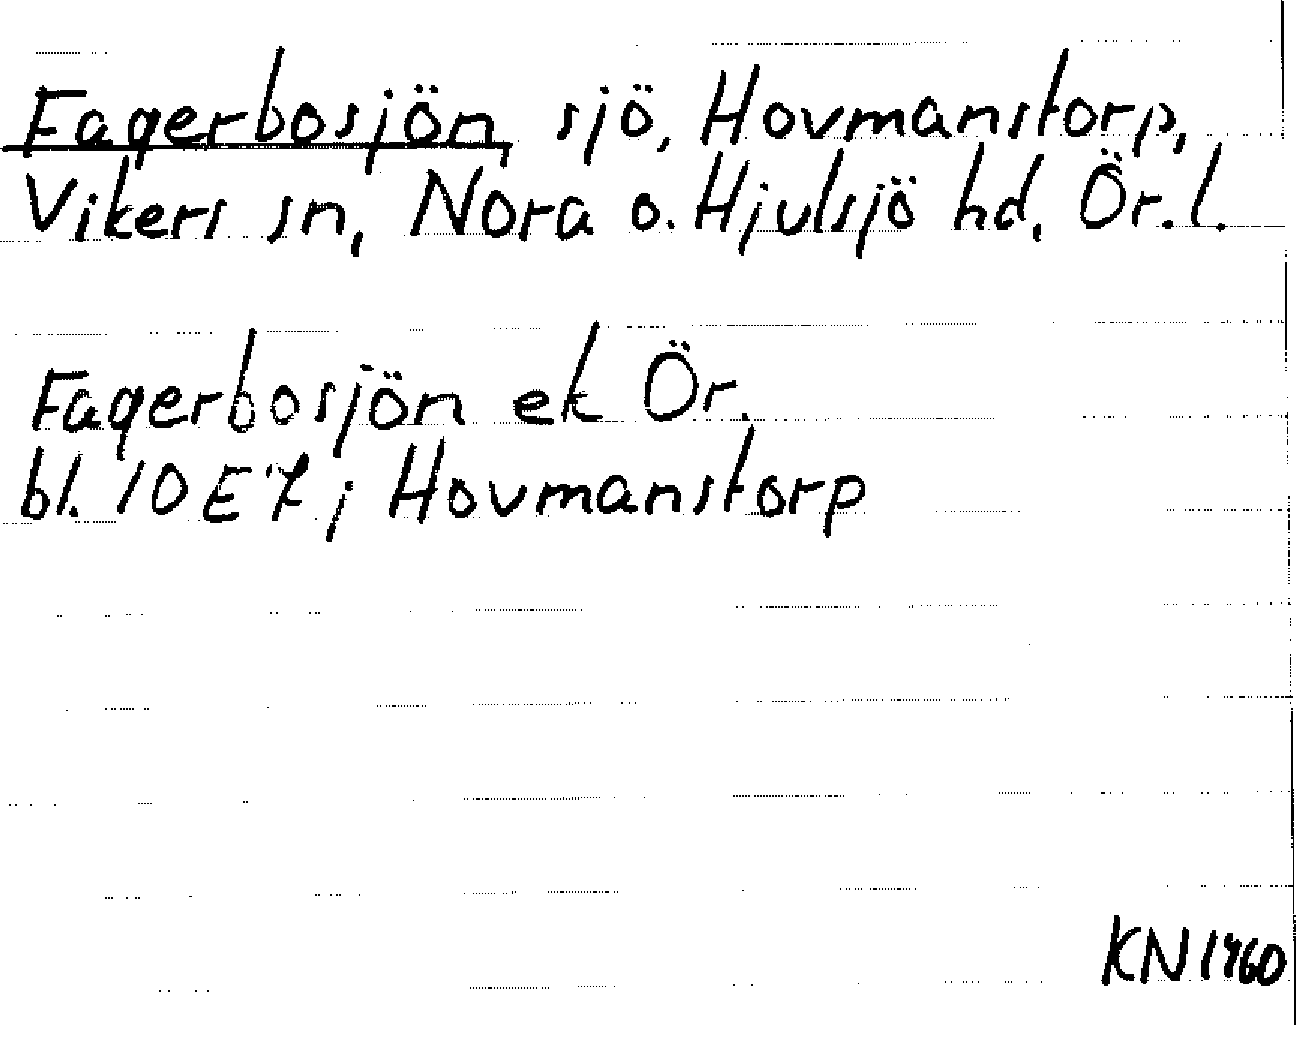 Fagerbosjön, sjö, Hovmanstorp,
Vikers sn, Nora o. Hjulsjö hd, Ör. l.
Fagerbosjön ek Ör.
bl. 10E7; Hovmanstorp
KN 1960